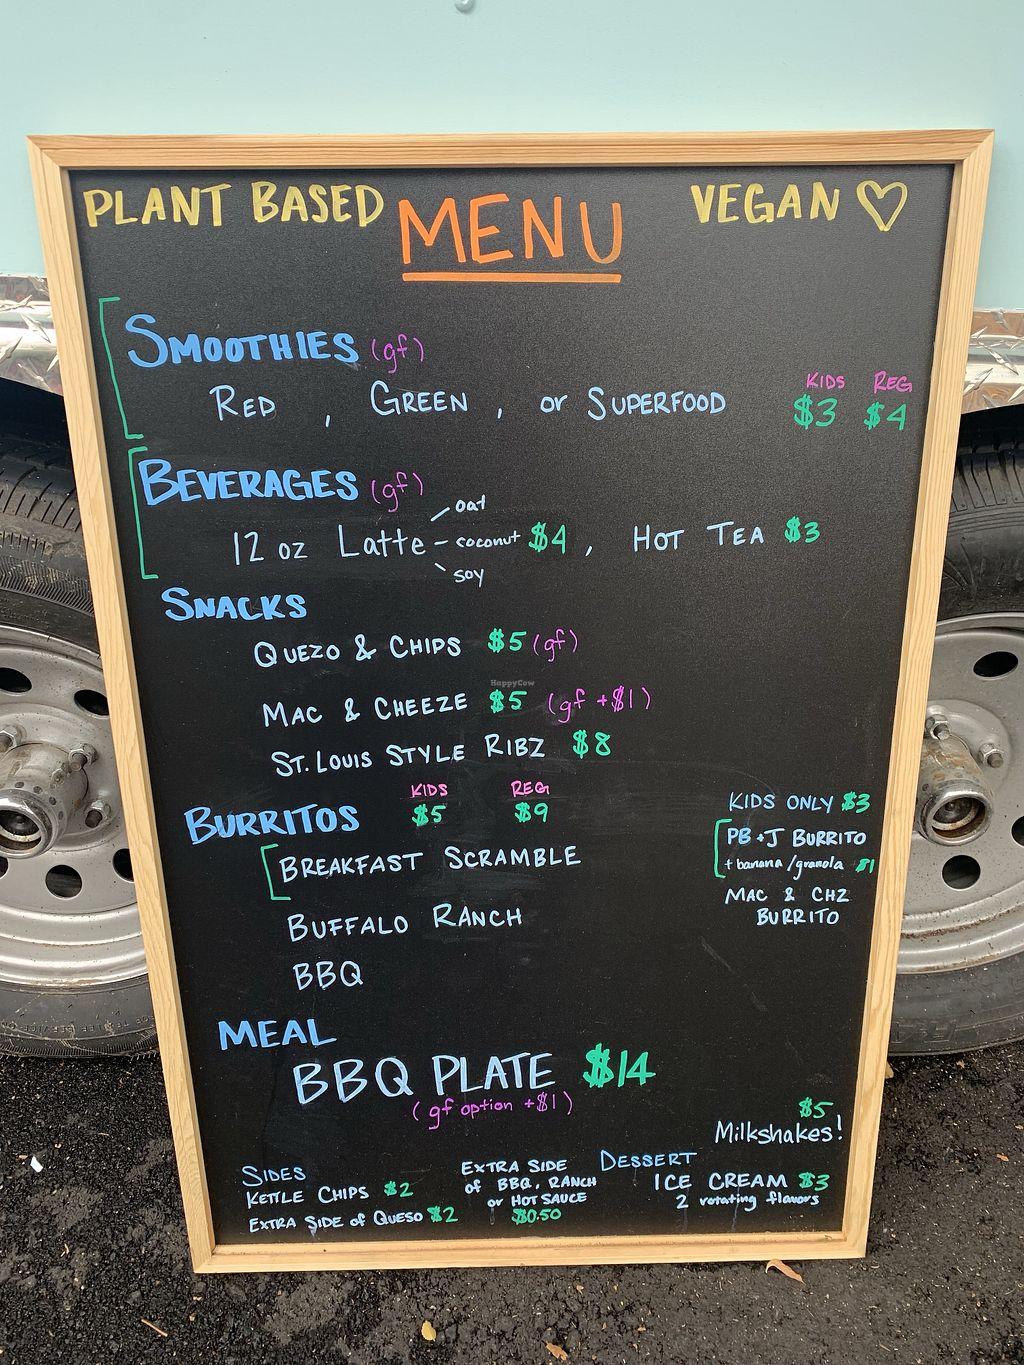 PLANT BASED MENU VEGAN
SMOOTHIES (gf)
KIDS REG
RED, GREEN, or SUPERFOOD $3 $4
BEVERAGES (gf)
oat
12 oz Latte - coconut $4, HOT TEA $3
soy
SNACKS
QUEZO & CHIPS $5 (gf)
HappyCow
MAC & CHEEZE $5 (gf +$1)
ST. LOUIS STYLE RIBZ $8
KIDS REG
BURRITOS $5 $9
BREAKFAST SCRAMBLE
BUFFALO RANCH
BBQ
KIDS ONLY $3
PB+J BURRITO
+ banana/granola $1
MAC & CHZ
BURRITO
MEAL
BBQ PLATE $14
(gf option +$1)
$5
Milkshakes!
SIDES
KETTLE CHIPS $2
EXTRA SIDE of QUESO $2
EXTRA SIDE
of BBQ, RANCH
or HOT SAUCE
$0.50
DESSERT
ICE CREAM $3
2 rotating flavors